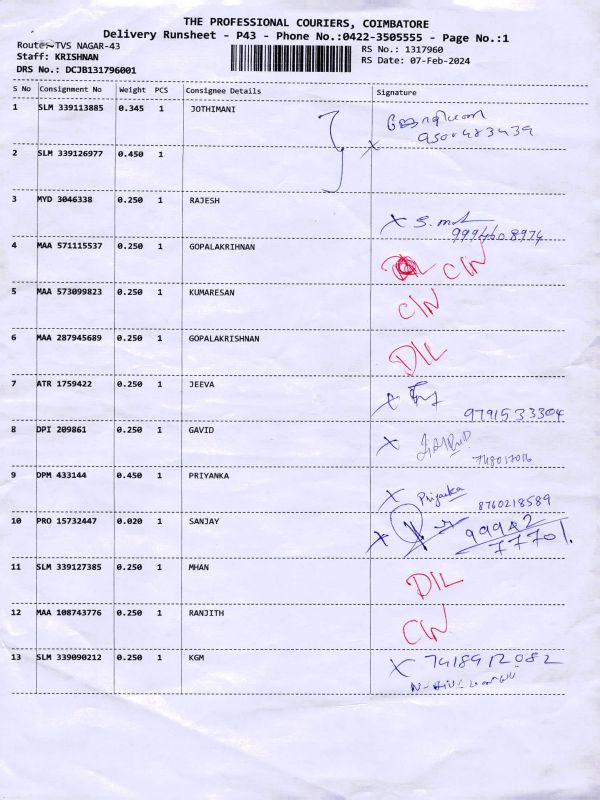 THE PROFESSIONAL COURIERS, COIMBATORE
Delivery Runsheet - P43 - Phone No.:0422-3505555 - Page No.:1
Route: TVS NAGAR-43
Staff: KRISHNAN
DRS No.: DCJB131796001
RS No.: 1317960
RS Date: 07-Feb-2024
S No Consignment No Weight PCS Consignee Details Signature
1 SLM 339113885 0.345 1 JOTHIMANI
2 SLM 339126977 0.450 1
X
3 MYD 3046338 0.250 1 RAJESH
X
9994608974
4 MAA 571115537 0.250 1 GOPALAKRIHNAN CIN
5 MAA 573099823 0.250 1 KUMARESAN CIN
6 MAA 287945689 0.250 1 GOPALAKRISHNAN DIL
7 ATR 1759422 0.250 1 JEEVA X
9791533304
8 DPI 209861 0.250 1 GAVID X
748017016
9 DPM 433144 0.450 1 PRIYANKA X Priyanka 8760218589
10 PRO 15732447 0.020 1 SANJAY X 99942
77701
11 SLM 339127385 0.250 1 MHAN DIL
12 MAA 108743776 0.250 1 RANJITH CIN
13 SLM 339090212 0.250 1 KGM X 7418912082